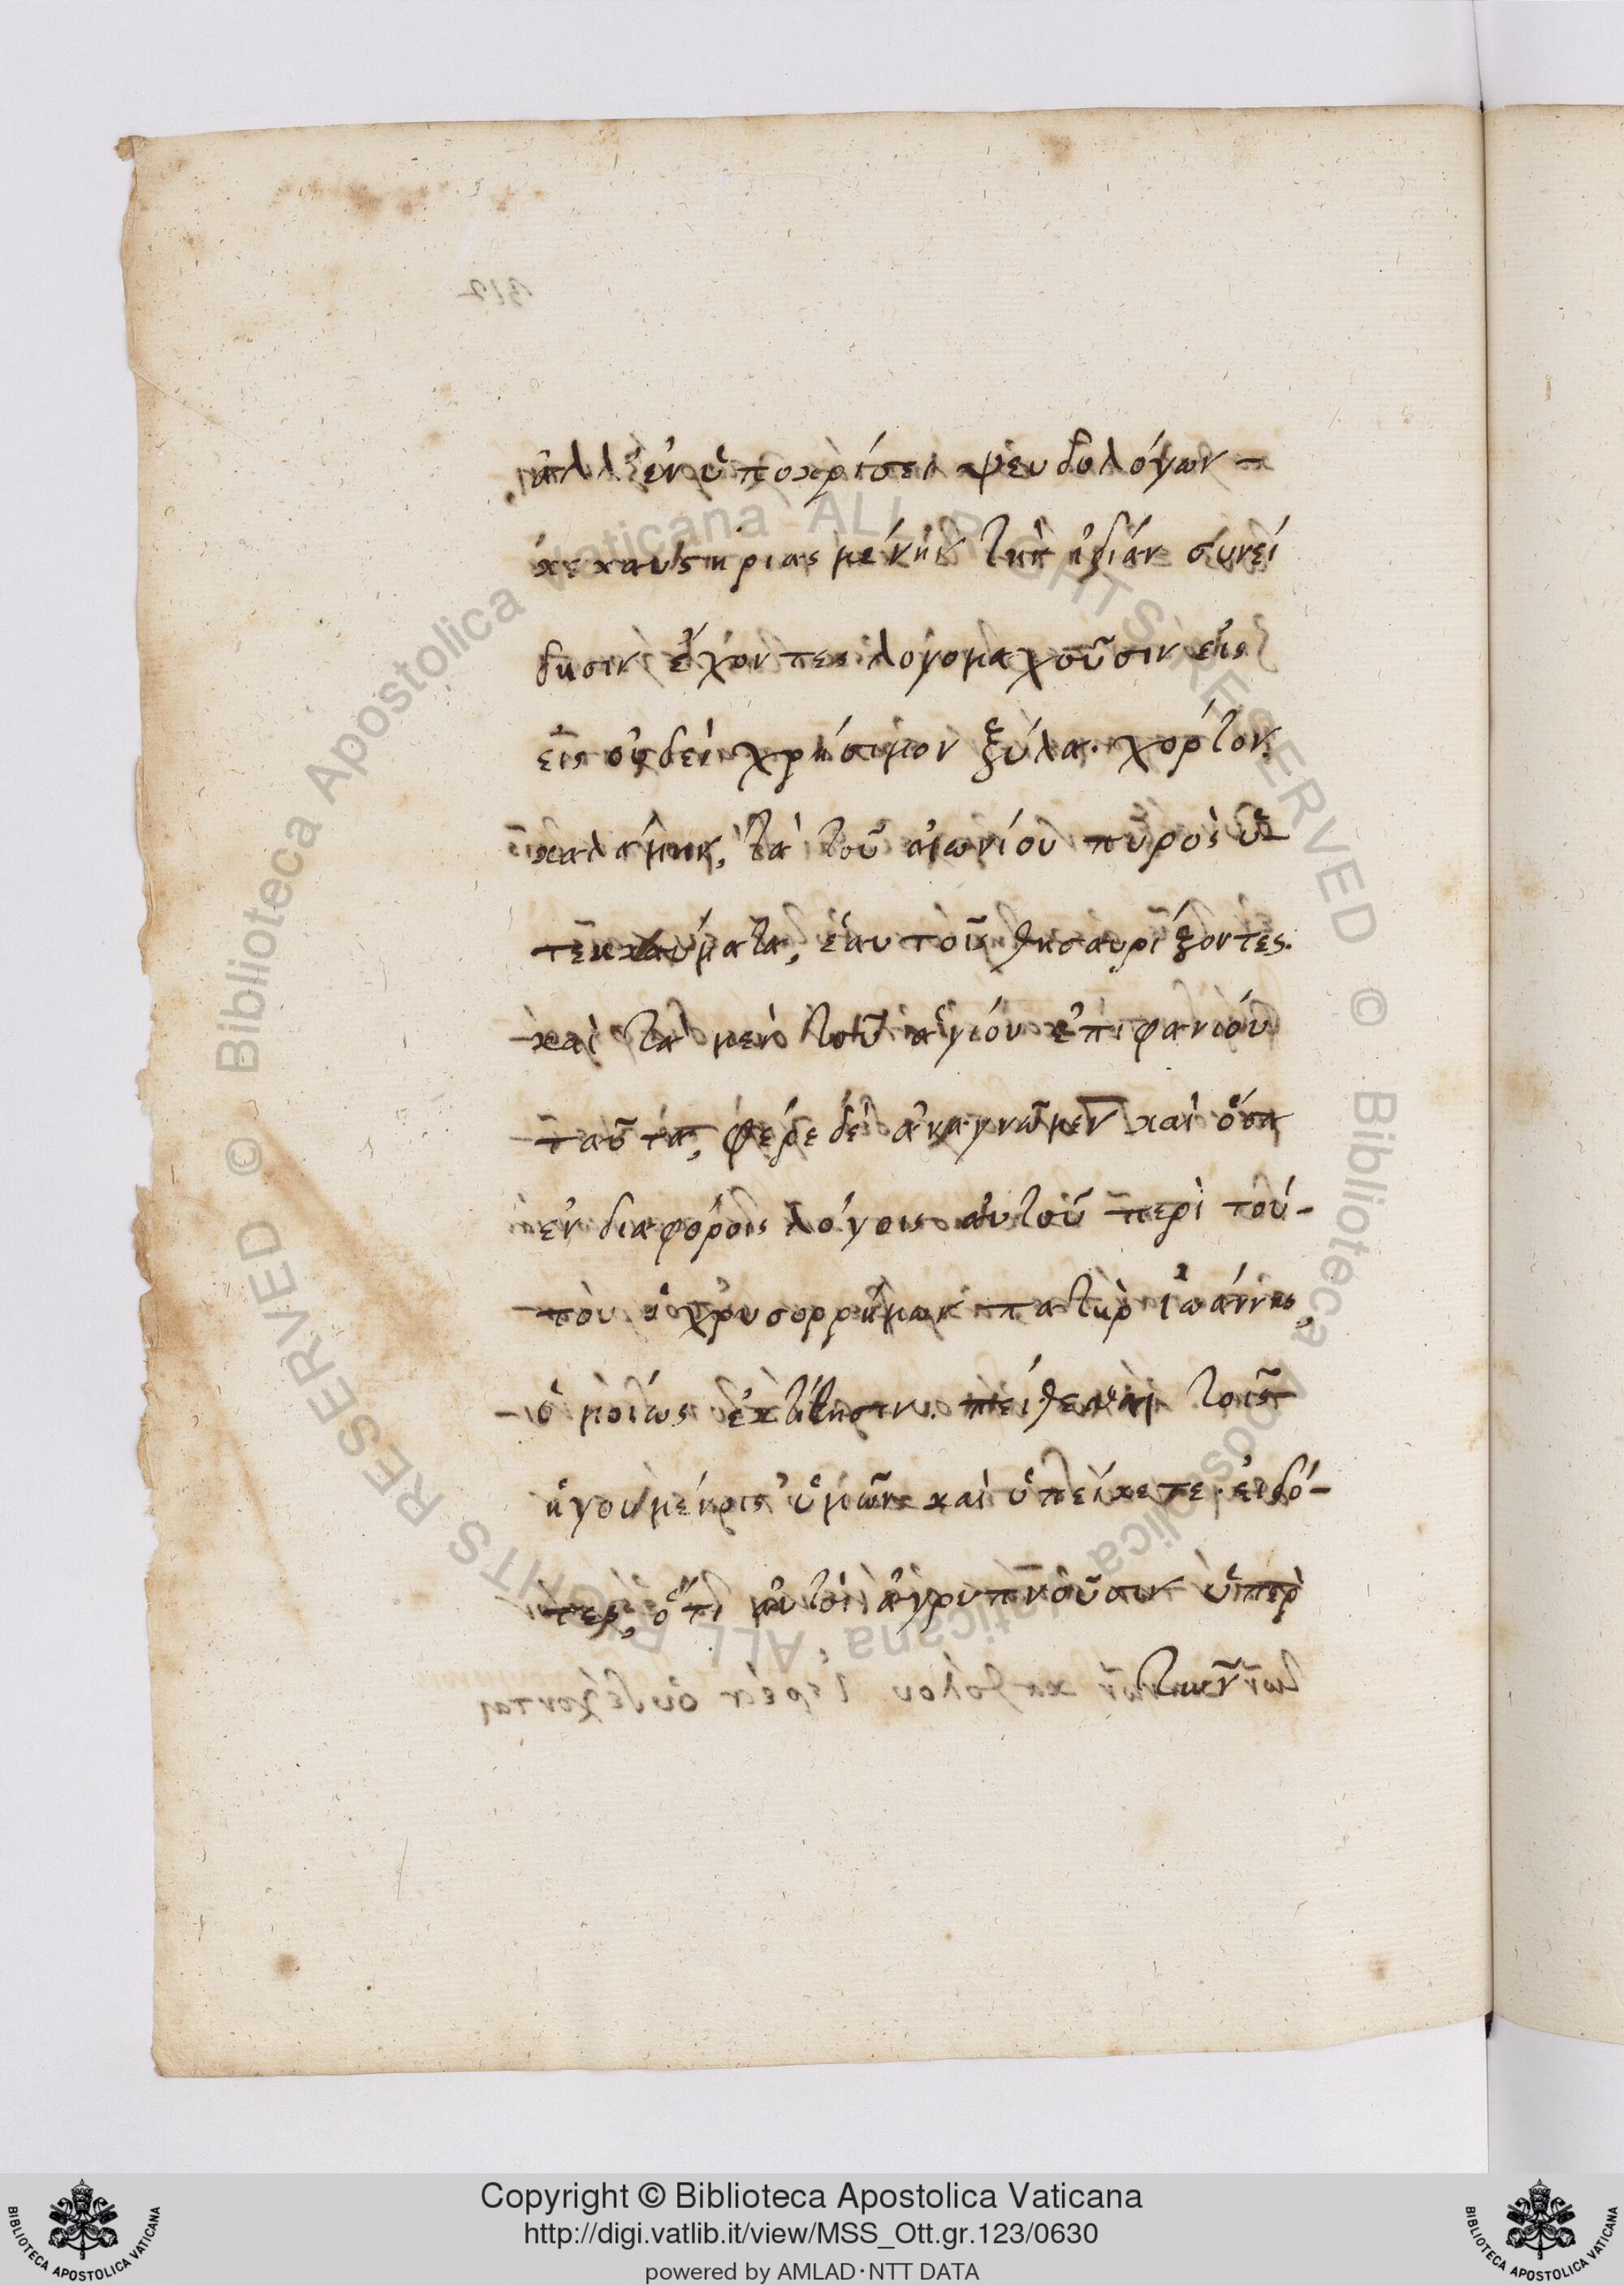 ἀλλ' ἐν ὑποκρίσει ψευδολόγων
κεκαυστηριασμένην τὴν ἠδίαν συνεί
δησιν ἔχοντες λογομαχοῦσιν εἰς
εἰς οὐδὲν χρήσιμον ξύλα. χόρτον.
καλάμην, τὰ τοῦ αἰωνίου πυρὸς ὑ-
πεκκαύματα, ἑαυτοῖς θησαυρίζοντες.
καὶ τὰ μὲν τοῦ ἁγίου ἐπιφανίου
ταῦτα, φέρε δὲ ἀναγνῶμεν καὶ ὅσα
ἐν διαφόροις λόγοις αὐτοῦ περὶ τού-
του ὁ χρυσορρήμων πατὴρ ἰωάννης,
ὁμοίως ἐκτίθησιν. πείθεσθαι τοῖς
ἡγουμένοις ὑμῶν καὶ ὑπείκετε. εἰδό-
τες, ὅτι αὐτοὶ ἀγρυπνοῦσιν ὑπὲρ
τῶν
Copyright © Biblioteca Apostolica Vaticana
http://digi.vatlib.it/view/MSS_Ott.gr.123/0630
powered by AMLAD·NTT DATA
BIBLIOTECA APOSTOLICA VATICANA
BIBLIOTECA APOSTOLICA VATICANA
© Biblioteca Apostolica Vaticana ALL RIGHTS RESERVED
© Biblioteca Apostolica Vaticana, ALL RIGHTS RESERVED